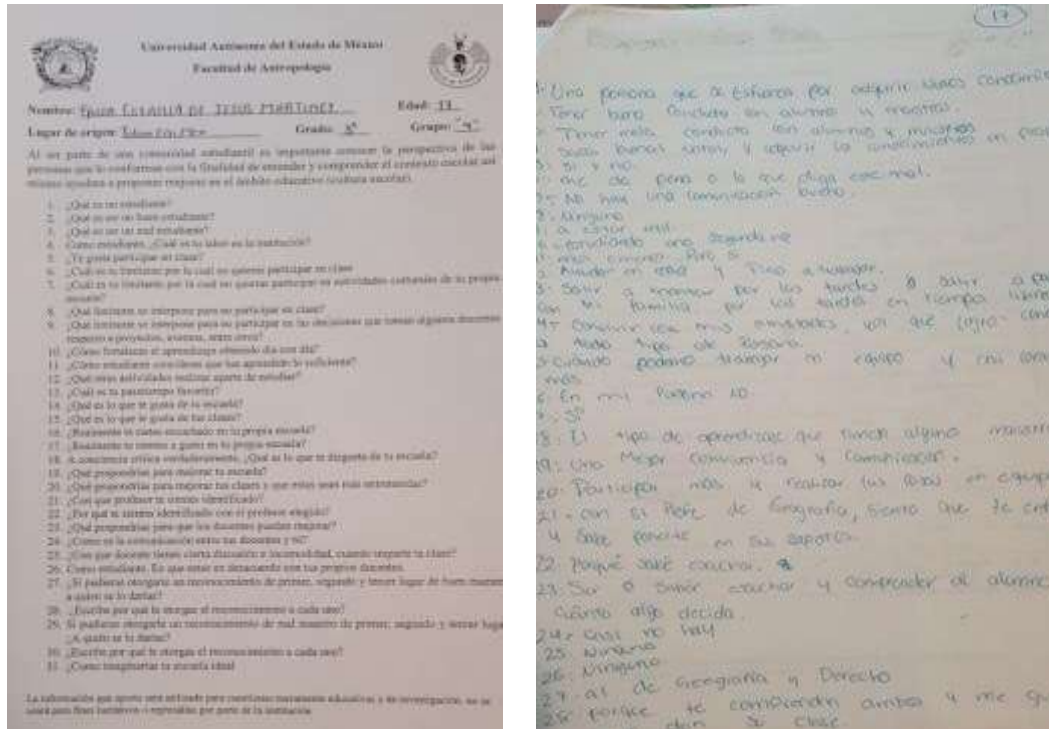 Universidad Autónoma del Estado de México
Facultad de Antropología
Nombre: DE JESUS MARTINEZ Edad: 17
Lugar de origen: Grado: 3° Grupo: "4"
Al ser parte de una comunidad estudiantil es importante conocer la perspectiva de las
personas que lo conforman con la finalidad de entender y comprender el contexto escolar así
mismo ayudara a proponer mejoras en el ámbito educativo (cultura escolar).
1. ¿Qué es un estudiante?
2. ¿Qué es ser un buen estudiante?
3. ¿Qué es ser un mal estudiante?
4. Como estudiante, ¿Cuál es tu labor en la institución?
5. ¿Te gusta participar en clase?
6. ¿Cuál es tu limitante por la cual no quieras participar en clase
7. ¿Cuál es tu limitante por la cual no quieras participar en actividades culturales de tu propia
escuela?
8. ¿Qué limitante se interpone para no participar en clase?
9. ¿Qué limitante se interpone para no participar en las decisiones que toman algunos docentes
respecto a proyectos, eventos, entre otros?
10. ¿Cómo fortaleces el aprendizaje obtenido día con día?
11. ¿Cómo estudiante consideras que has aprendido lo suficiente?
12. ¿Qué otras actividades realizas aparte de estudiar?
13. ¿Cuál es tu pasatiempo favorito?
14. ¿Qué es lo que te gusta de tu escuela?
15. ¿Qué es lo que te gusta de tus clases?
16. ¿Realmente te sientes escuchado en tu propia escuela?
17. ¿Realmente te sientes a gusto en tu propia escuela?
18. A conciencia crítica verdaderamente, ¿Qué es lo que te disgusta de tu escuela?
19. ¿Qué propondrías para mejorar tu escuela?
20. ¿Qué propondrías para mejorar tus clases y que estas sean más entretenidas?
21. ¿Con que profesor te sientes identificado?
22. ¿Por qué te sientes identificado con el profesor elegido?
23. ¿Qué propondrías para que los docentes puedan mejorar?
24. ¿Cómo es la comunicación entre tus docentes y tú?
25. ¿Con que docente tienes cierta discusión o incomodidad, cuando imparte la clase?
26. Como estudiante, En que estás en desacuerdo con tus propios docentes.
27. ¿Si pudieras otorgarle un reconocimiento de primer, segundo y tercer lugar de buen maestro
a quien se lo darías?
28. ¿Escribe por qué le otorgas el reconocimiento a cada uno?
29. Si pudieras otorgarle un reconocimiento de mal maestro de primer, segundo y tercer lugar
¿A quién se lo darías?
30. ¿Escribe por qué le otorgas el reconocimiento a cada uno?
31. ¿Cómo imaginarías tu escuela ideal
La información que aporte será utilizada para cuestiones meramente educativas y de investigación, no se
usará para fines lucrativos o represalias por parte de la institución
17
1: Una persona que se esfuerza por adquirir
Tener buena conducta con alumnos y maestros.
Tener mala conducta con alumnos y maestros
Sacar buenas notas y adquirir
5: Si y no
me da pena o lo que diga este mal.
7: No hay una comunicación buena.
8: Ninguno
estudiando
Ayudar en casa y a trabajar.
Salir a por las tardes o salir a
con mi familia por las tardes en tiempo libre
Convivir con mis amistades,
todo tipo de
Cuando podemos trabajar en equipo y
más.
En mi persona no
Si
18: El tipo de aprendizaje que tienen alguno maestro
19: Una mejor convivencia y comunicación.
20: Participar más y realizar las cosas en equipo
21: con el Profe de Geografía, siento que te
y sabe ponerte en sus zapatos.
22. Porque sabe escuchar.
23: Ser o saber escuchar y comprender al alumno
cuanto algo decida.
24: Casi no hay
25. Ninguno
26: Ninguno
27. al de Geografía y Derecho
28: Porque te comprenden ambos y me
su clase.